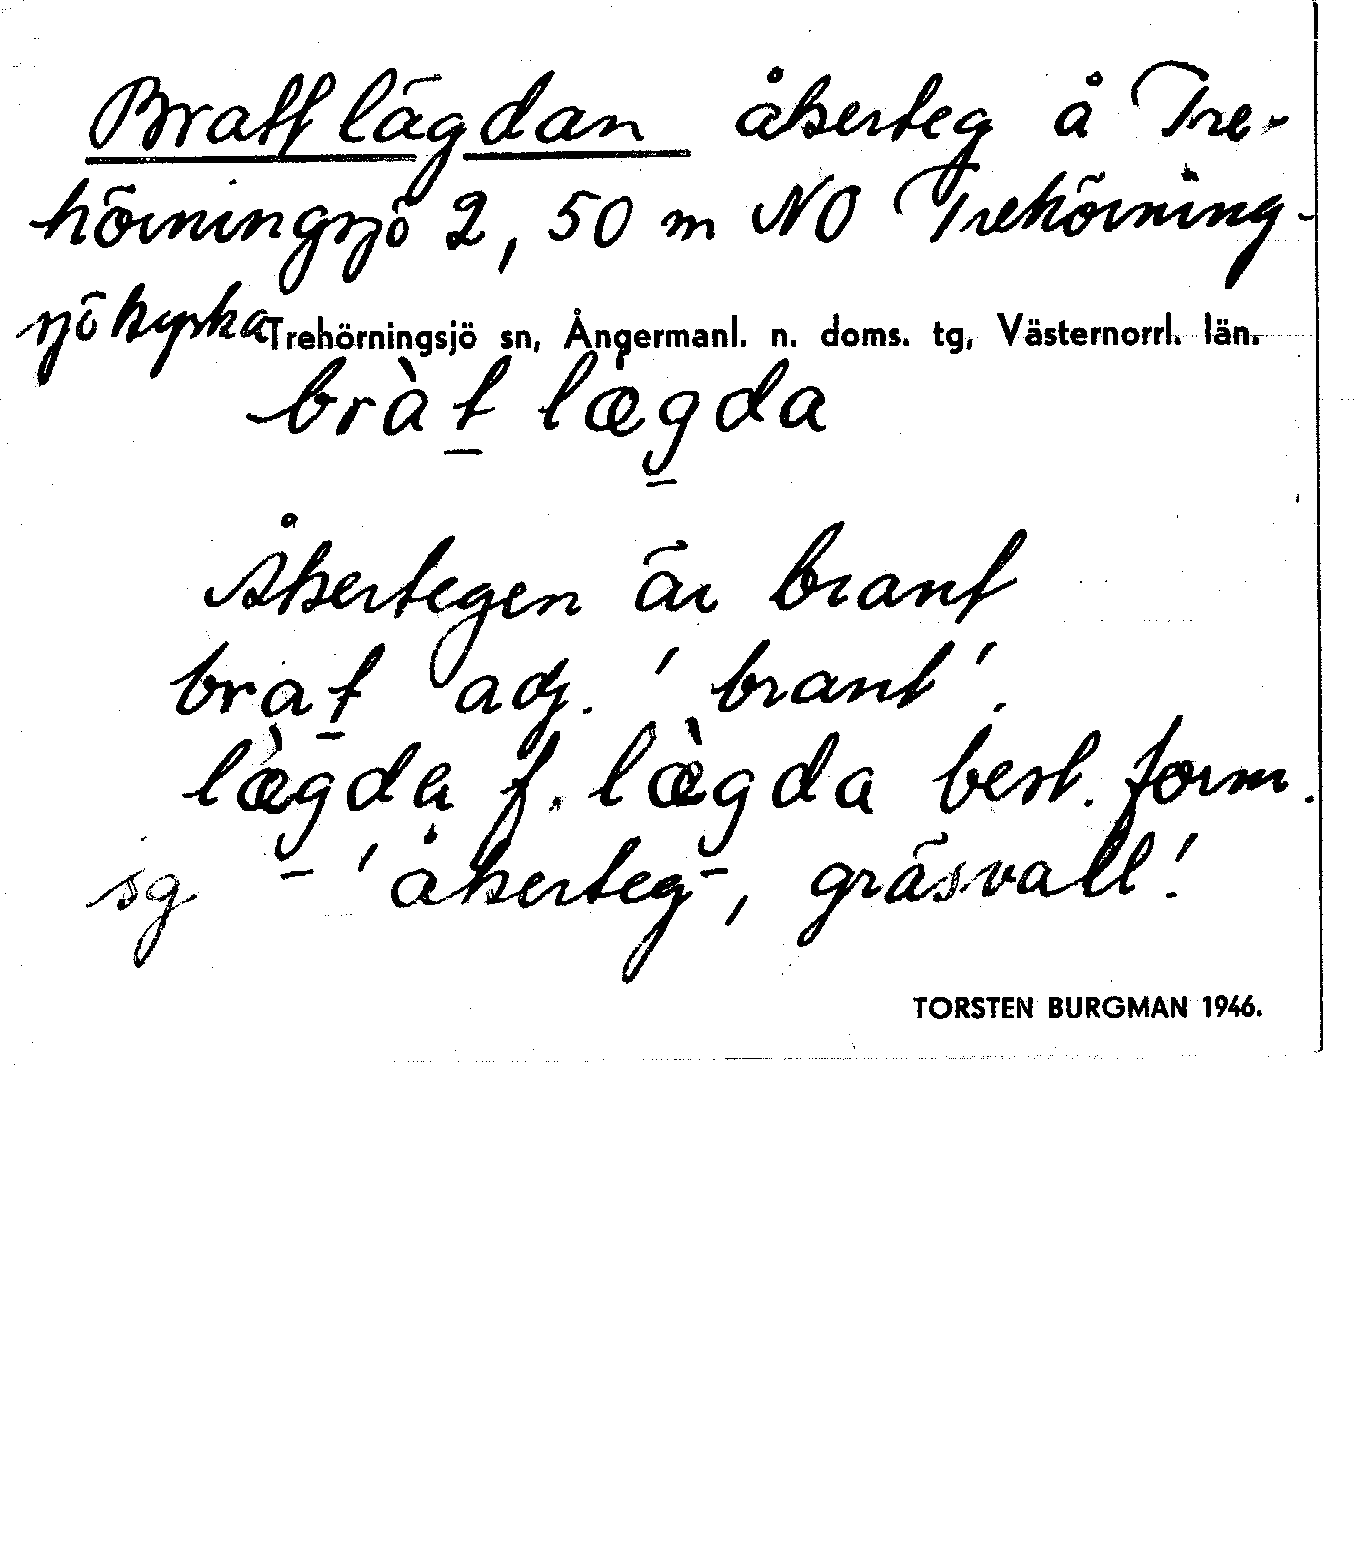 Brattlägdan åkerteg å Tre-
hörningsjö 2, 50 m NO Trehörning-
sjö kyrka
Trehörningsjö sn, Ångermanl. n. doms. tg, Västernorrl. län.
bràt lægda
Åkertegen är brant
brat adj. 'brant'.
lægda f. lægda best. form.
sg – 'åkerteg, gräsvall'.
TORSTEN BURGMAN 1946.